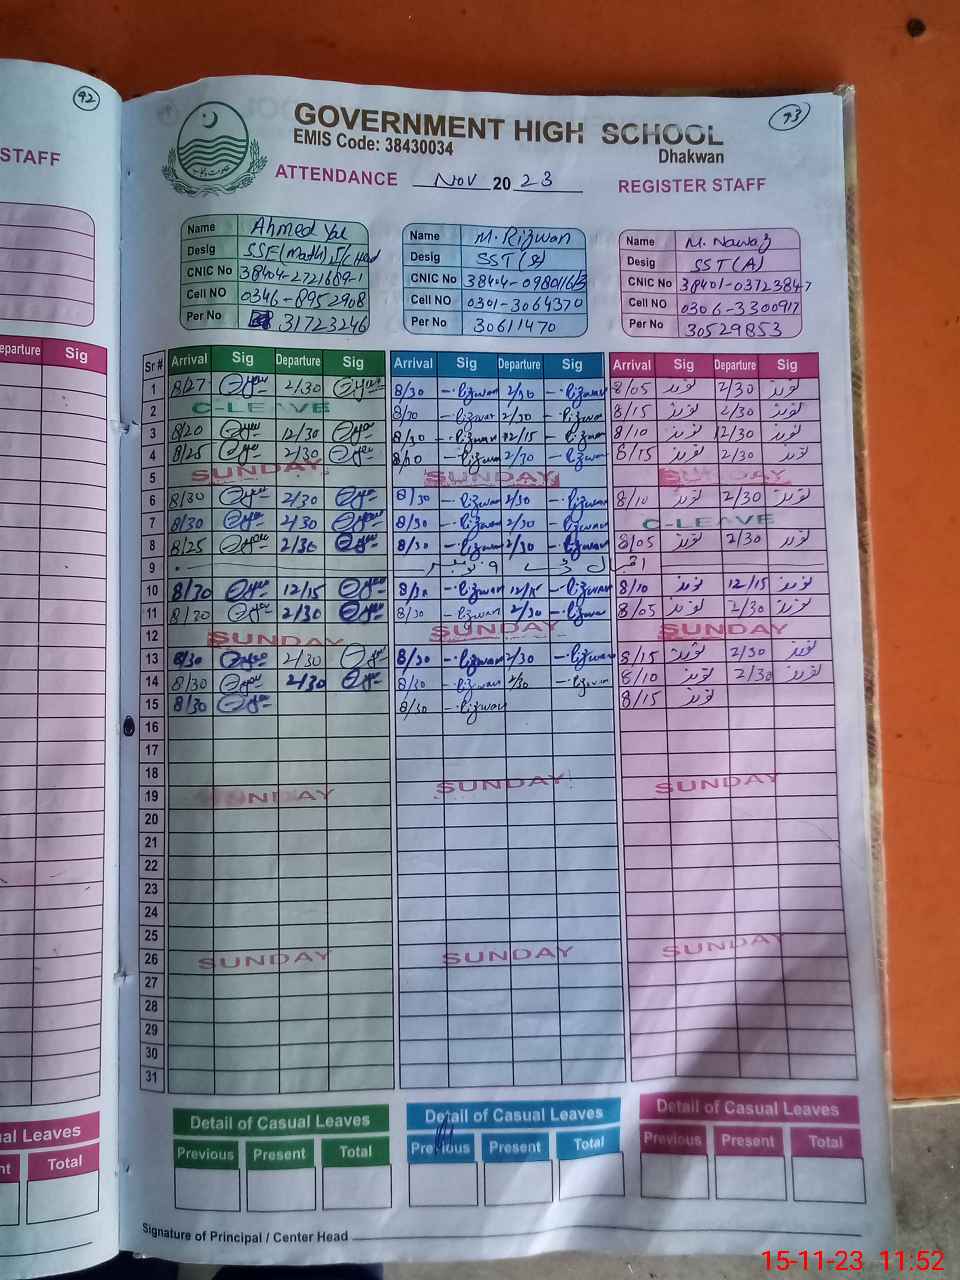 92
STAFF
eparture Sig
al Leaves
nt Total
93
GOVERNMENT HIGH SCHOOL
EMIS Code: 38430034
Dhakwan
ATTENDANCE Nov 2023 REGISTER STAFF
Name Ahmed
Desig
CNIC No 38404-2721689-1
Cell NO 0346-8952908
Per No 31723246
Name M. Rizwan
Desig SST(S)
CNIC No
Cell NO 0301-3064370
Per No 30611470
Name M. Nawaz
Desig SST(A)
CNIC No 38401-0372384-7
Cell NO 0306-3300917
Per No 30529853
Sr # Arrival Sig Departure Sig Arrival Sig Departure Sig Arrival Sig Departure Sig
1 8/27 2/30 8/30 Rizwan 2/30 Rizwan 8/05 2/30
2 C-LEAVE 8/30 Rizwan 2/30 Rizwan 8/15 2/30
3 8/20 12/30 8/30 Rizwan 12/15 Rizwan 8/10 12/30
4 8/25 2/30 Rizwan 2/30 Rizwan 8/15 2/30
5 SUNDAY SUNDAY SUNDAY
6 8/30 2/30 8/30 Rizwan 2/30 Rizwan 8/10 2/30
7 8/30 2/30 8/30 Rizwan 2/30 Rizwan C-LEAVE
8 8/25 2/30 8/30 Rizwan 2/30 Rizwan 8/05 2/30
9 اقبال ڈے ۹ نومبر
10 8/30 12/15 8/30 Rizwan 12/15 Rizwan 8/10 12/15
11 8/30 2/30 8/30 Rizwan 2/30 Rizwan 8/05 2/30
12 SUNDAY SUNDAY SUNDAY
13 8/30 2/30 8/30 Rizwan 2/30 Rizwan 8/15 2/30
14 8/30 2/30 8/30 Rizwan 2/30 Rizwan 8/10 2/30
15 8/30 8/30 Rizwan 8/15
16
17
18
19 SUNDAY SUNDAY SUNDAY
20
21
22
23
24
25
26 SUNDAY SUNDAY SUNDAY
27
28
29
30
31
Detail of Casual Leaves Detail of Casual Leaves Detail of Casual Leaves
Previous Present Total Previous Present Total Previous Present Total
Signature of Principal / Center Head
15-11-23 11:52